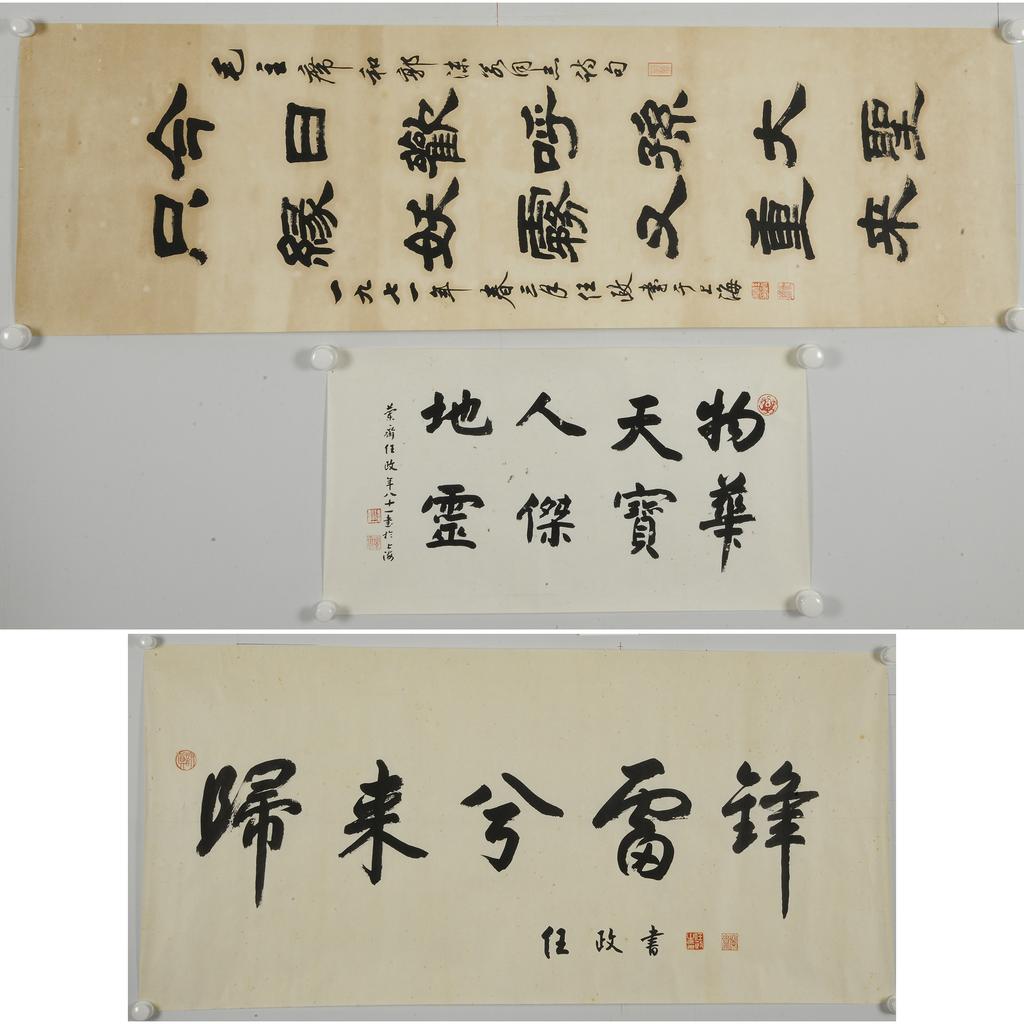 毛主席和郭沫若同志詩句
今日歡呼孫大聖
只緣妖霧又重来
一九七一年春三月任政書于上海
物華
天寶
人傑
地靈
蘭齋任政年八十一書於上海
歸来兮雷鋒
任政書